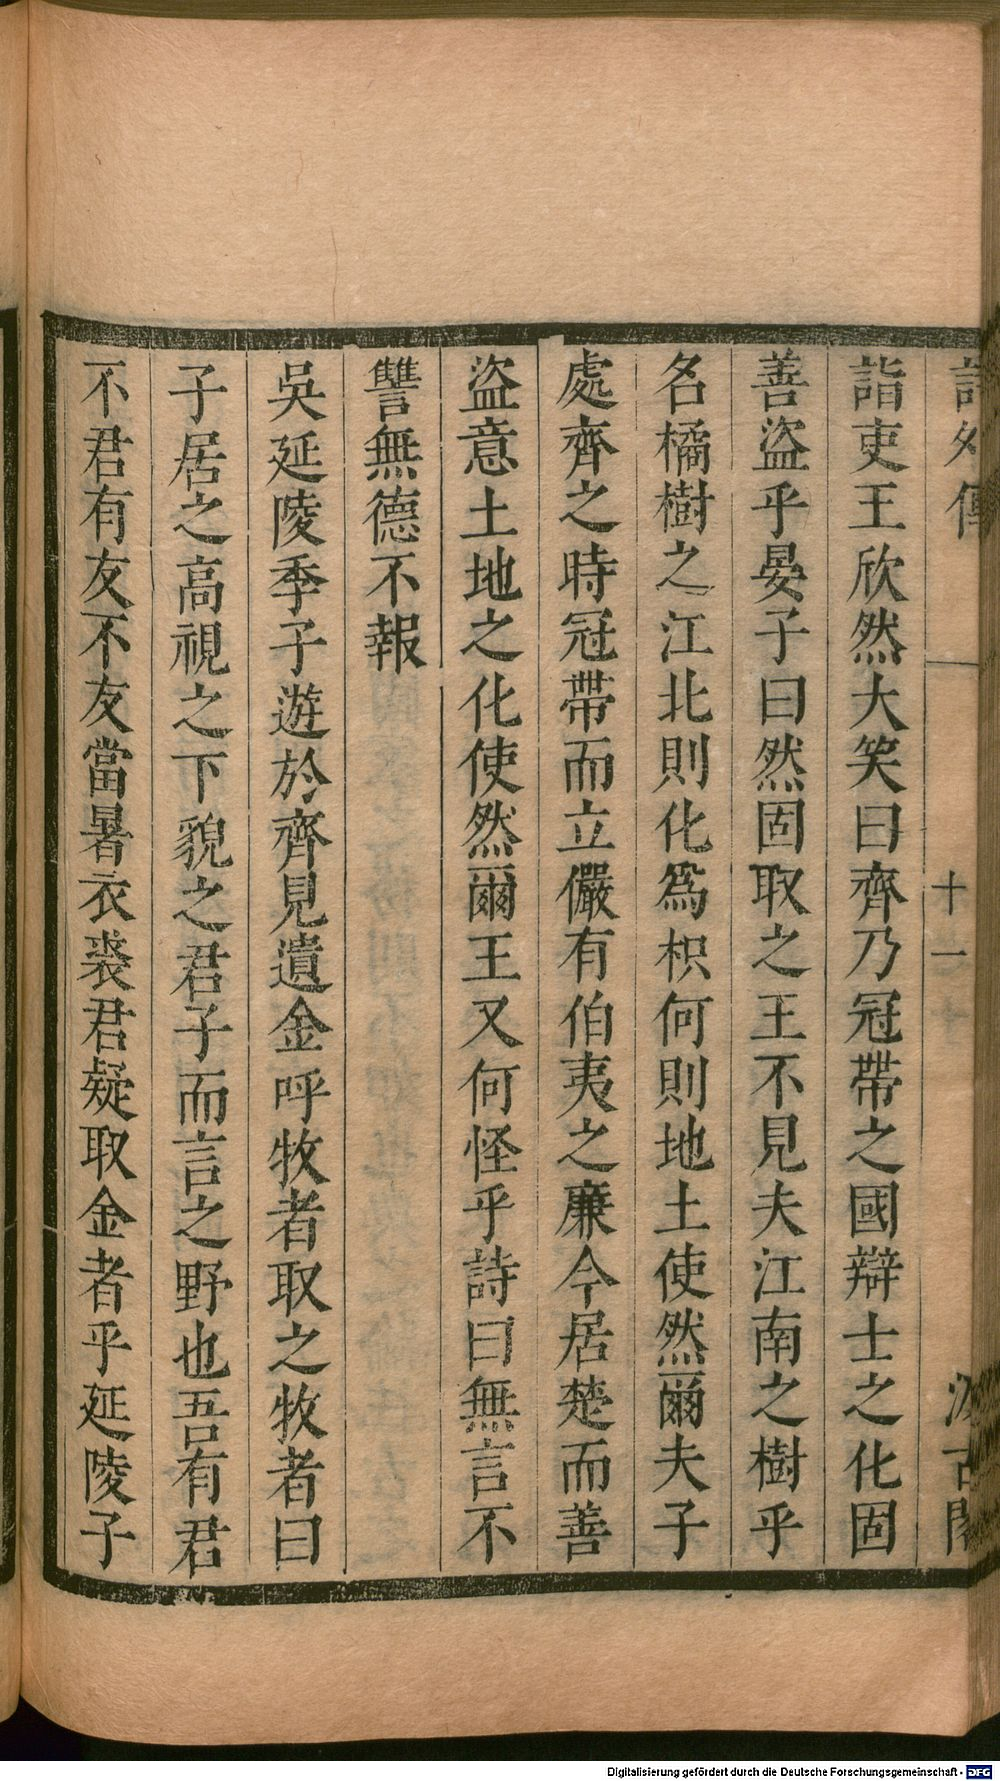 詩外傳 十一 汲古閣
詣吏王欣然大笑曰齊乃冠帶之國辯士之化固
善盜乎晏子曰然固取之王不見夫江南之樹乎
名橘樹之江北則化爲枳何則地土使然爾夫子
處齊之時冠帶而立儼有伯夷之廉今居楚而善
盜意土地之化使然爾王又何怪乎詩曰無言不
讐無德不報
吳延陵季子遊於齊見遺金呼牧者取之牧者曰
子居之高視之下貌之君子而言之野也吾有君
不君有友不友當暑衣裘君疑取金者乎延陵子
Digitalisierung gefördert durch die Deutsche Forschungsgemeinschaft - DFG